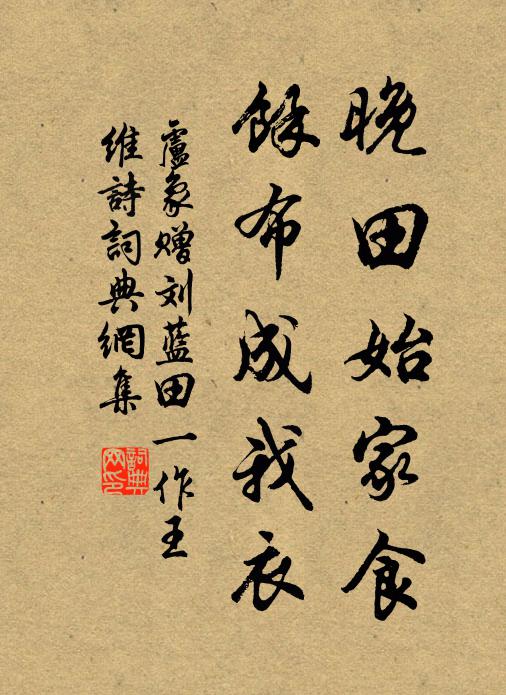 晚田始家食
餘布成我衣
盧象贈刘藍田一作王
維詩詞典網集
詞典
网印